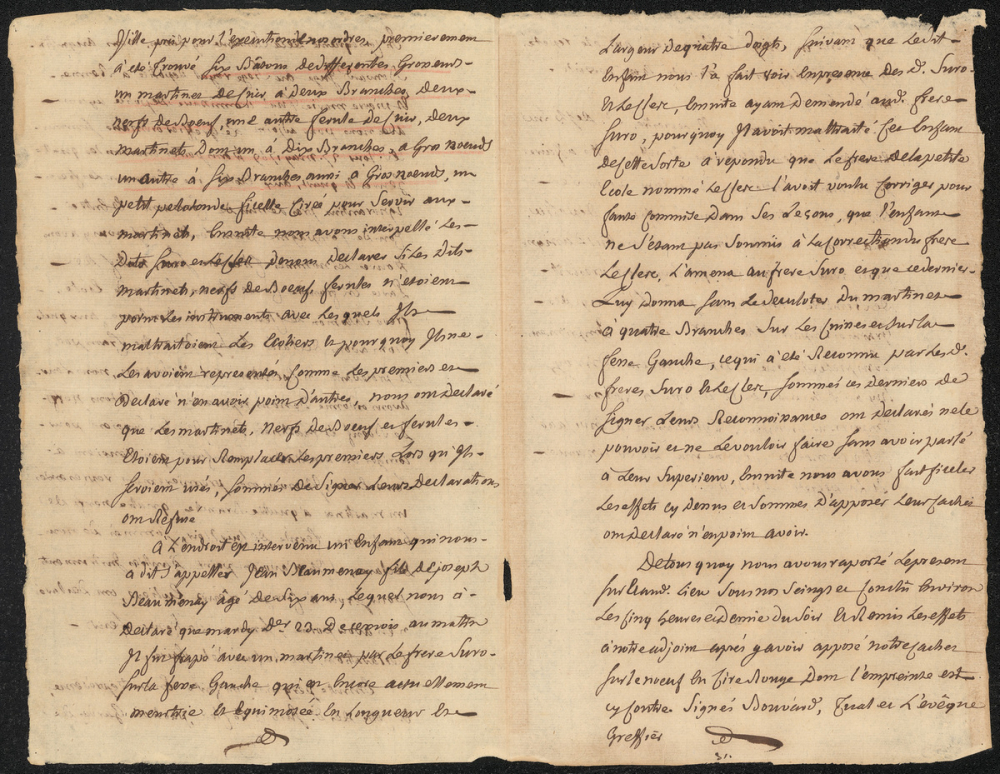 Ville pris pour l'execution de nos ordres, premierement
a été trouvé six Batons de differentes Groseurs
un martinet de Cuir à Deux Branches, deux
nerfs de Boeuf, une autre ferule de Cuir, deux
martinets Dont un à Dix Branches, a Gros noeuds
un autre à six Branches aussi a Gros noeuds, un
petit peloton de ficelle Cirée pour servir aux
martinets, Ensuite nous avons interpellé les
Dits Suro et Leclerc de nous declarer si les Dits
martinets, nerfs de Boeuf, ferules n'etoient
point les instruments avec lesquels Ils
maltraitoient Les Ecoliers et pourquoy Ils ne
les avoient representés comme les premiers et
Declaré n'en avoir point d'autres, nous ont declaré
que les martinets, nerfs de Boeuf et ferules
Etoient pour Remplacer les premiers Lors qu'Ils
seroient usés, sommés de signer Leurs Declarations
ont Refusé
a L'endroit est intervenu un Enfant qui nous
a dit s'appeller Jean Beaumenay fils de joseph
Beaumenay âgé De six ans, Lequel nous a
Declaré que mardy Der 23 Du courant au matin
Il fut frapé avec un martinet par Le frere Suro
sur la fesse Gauche qui est Encore actuellement
meurtrie et Equimosée En Longueur et
Largeur De quatre doigts, suivant que Ledit
Enfant nous l'a fait voir En presence des d. Suro
et Leclerc, Ensuite ayant Demandé aud. frere
Suro, pourquoy Il avoit maltraité Cet Enfant
de cette sorte a repondu que Le frere de la petite
Ecole nommé Leclerc l'avoit voulu Corriger pour
faute commise Dans ses Leçons, que l'enfant
ne s'étant pas soumis à la correction du frere
Leclerc, L'amena au frere Suro et que ce dernier
Luy donna sans Le deculoter du martinet
à quatre Branches sur Les Cuisses et sur la
fesse Gauche, ce qui a été Reconnu par les d.
freres Suro et Leclerc, sommés ces derniers de
signer Leurs Reconnoissances ont declarés ne le
pouvoir et ne Le vouloir faire sans avoir parlé
à Leur Superieur, Ensuite nous avons fait ficeler
Les effets cy denus et sommés D'apposer Leur Cachet
ont Declaré n'en point avoir.
De tout quoy nous avons raporté Le present
sur Les d. Lieu sous nos Seings et Environ
Les Cinq heures et Demie du Soir et Remis Les effets
à notre adjoint après y avoir apposé notre Cachet
sur le noeuf En Cire Rouge Dont l'empreinte est
cy Contre Signés Bouvard, Tual et L'évêque
Greffier